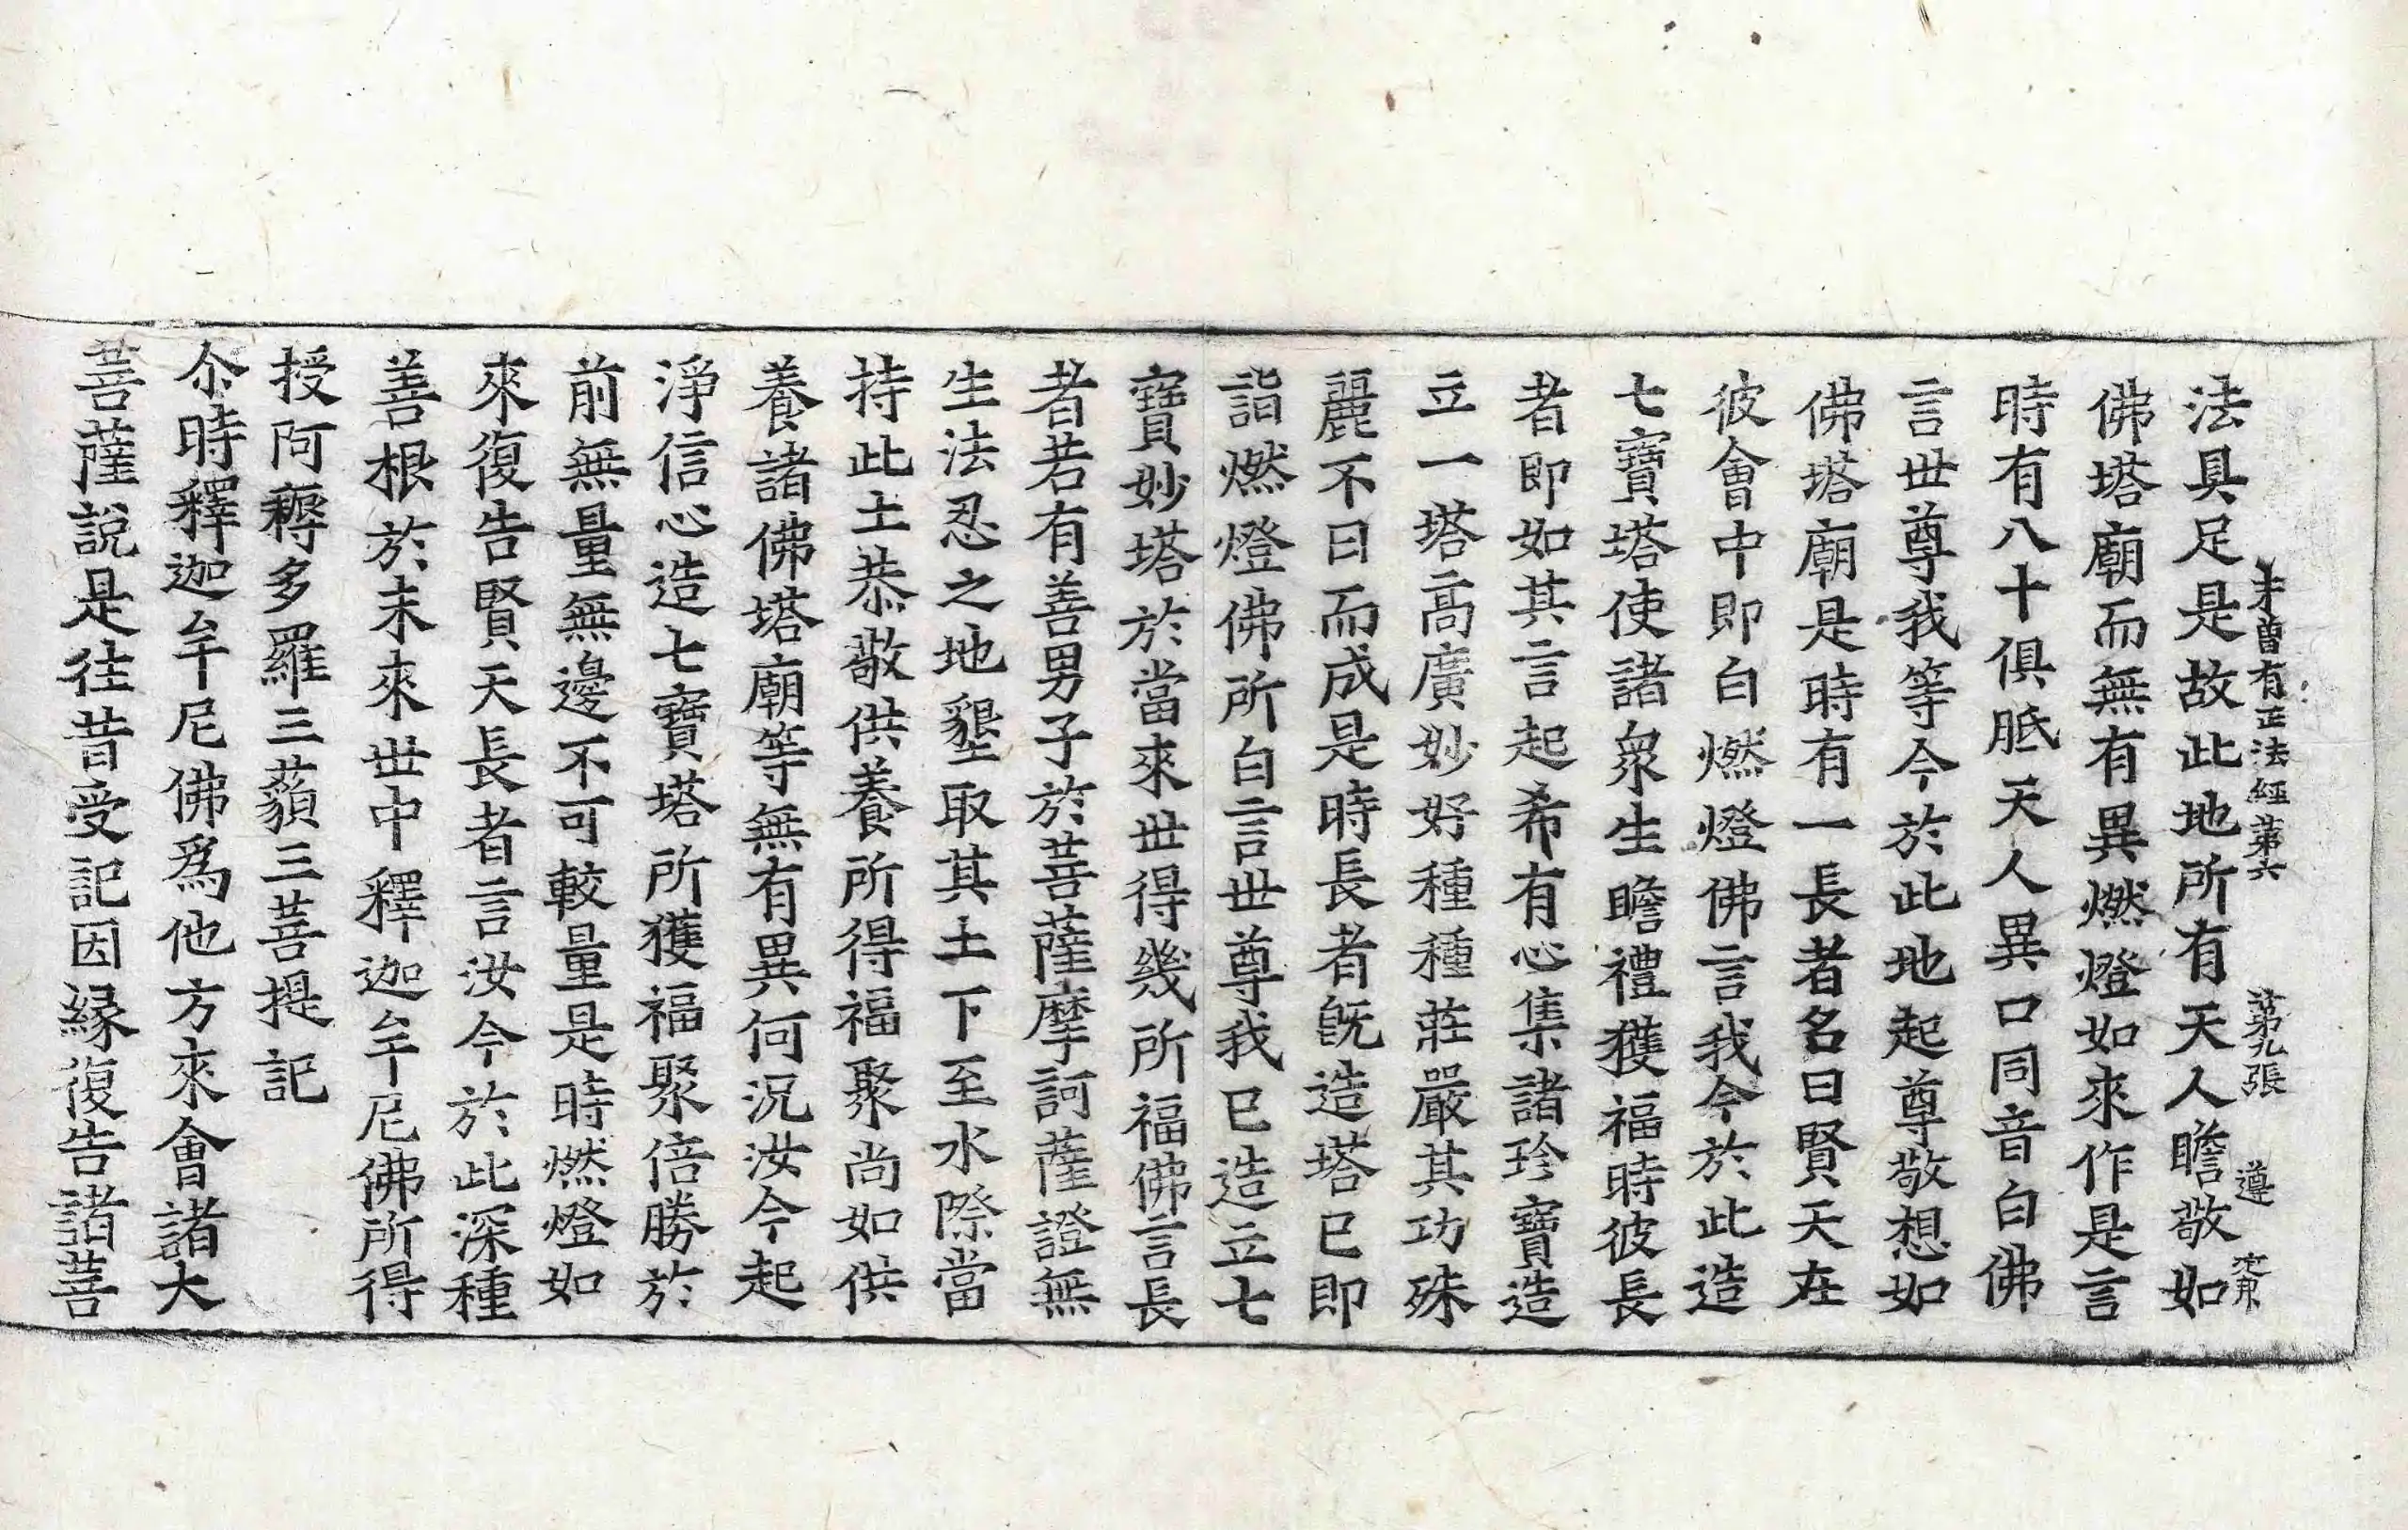 未曾有正法經第六 第九張 遵
法具足是故此地所有天人瞻敬如
佛塔廟而無有異燃燈如來作是言
時有八十俱胝天人異口同音白佛
言世尊我等今於此地起尊敬想如
佛塔廟是時有一長者名曰賢天在
彼會中即白燃燈佛言我今於此造
七寶塔使諸衆生瞻禮獲福時彼長
者即如其言起希有心集諸珍寶造
立一塔高廣妙好種種莊嚴其功殊
麗不日而成是時長者旣造塔已即
詣燃燈佛所白言世尊我已造立七
寶妙塔於當來世得幾所福佛言長
者若有善男子於菩薩摩訶薩證無
生法忍之地墾取其土下至水際當
持此土恭敬供養所得福聚尚如供
養諸佛塔廟等無有異何況汝今起
淨信心造七寶塔所獲福聚倍勝於
前無量無邊不可較量是時燃燈如
來復告賢天長者言汝今於此深種
善根於末來世中釋迦牟尼佛所得
授阿耨多羅三藐三菩提記
尒時釋迦牟尼佛爲他方來會諸大
菩薩說是往昔受記因縁復告諸菩